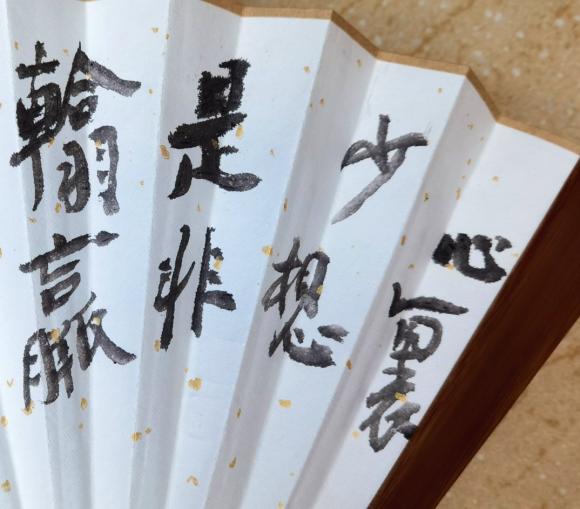 心裏
少想
是非
輸贏